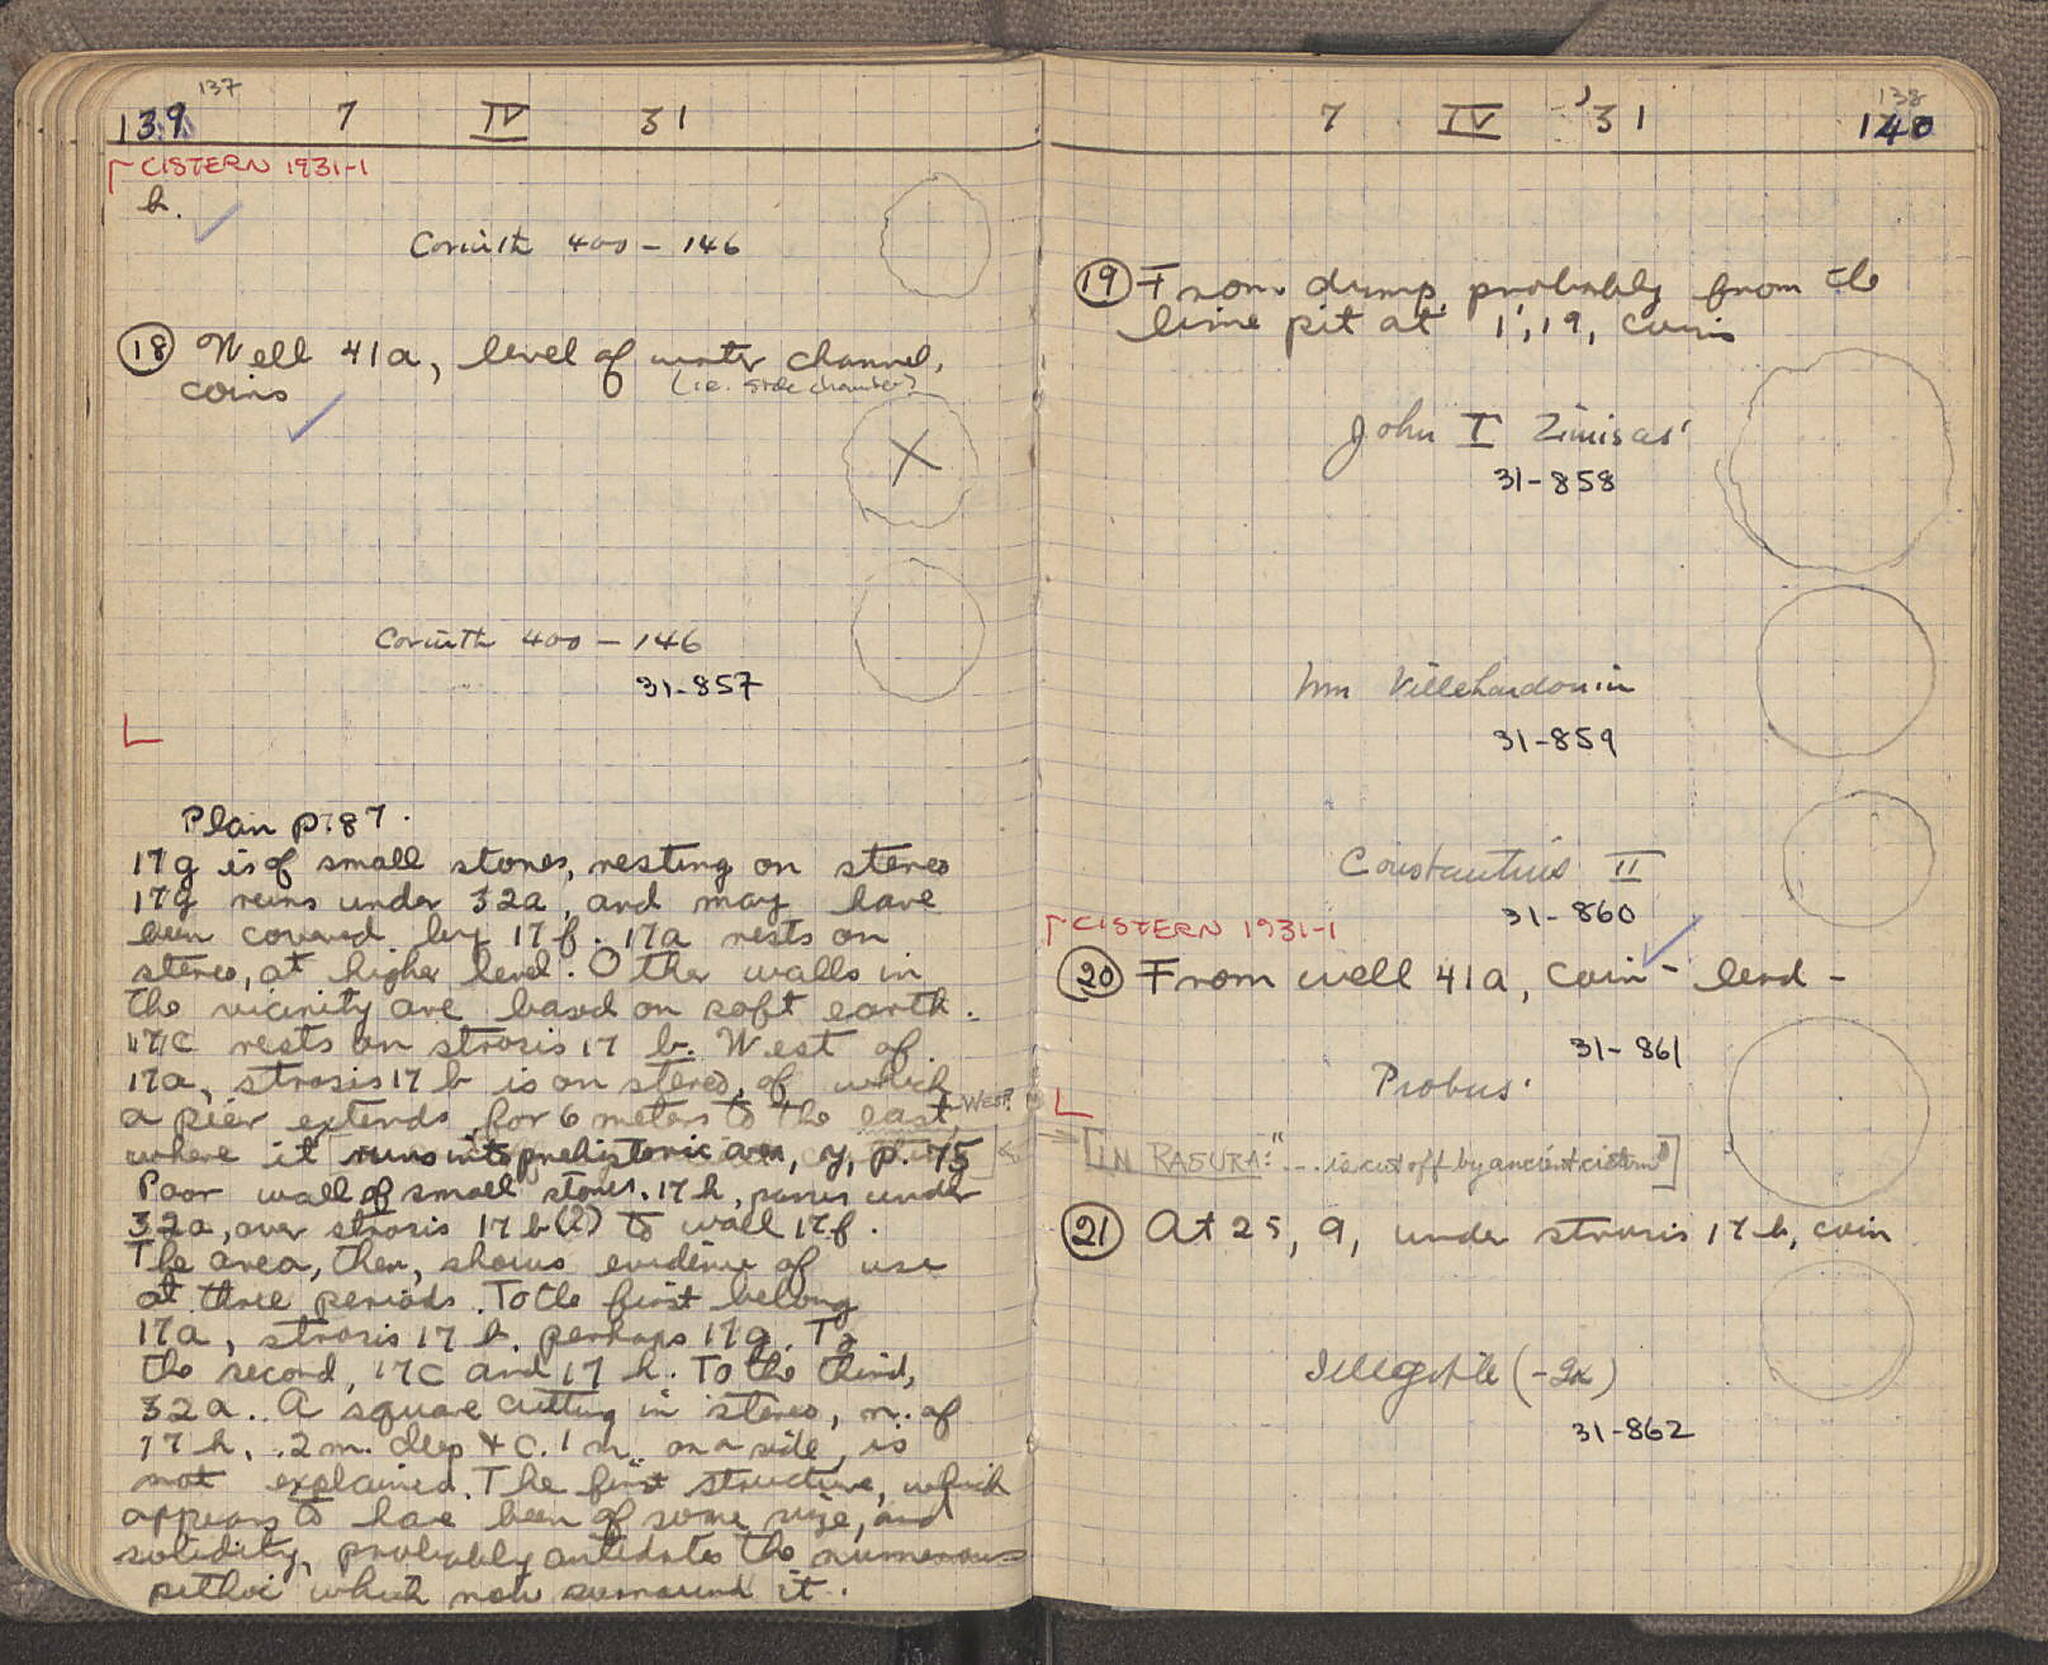 137
139 7 IV 31
CISTERN 1931-1
b.
Corinth 400 - 146
18 Well 41a, level of water channel,
(i.e. side chamber)
coins
X
Corinth 400 - 146
31-857
Plan p. 87.
17g is of small stones, resting on stereo
17g runs under 32a, and may have
been covered by 17f. 17a rests on
stereo, at higher level. Other walls in
the vicinity are based on soft earth.
17c rests on strosis 17 b. West of
17a, strosis 17 b is on stereo, of which
a pier extends for 6 meters to the east, WEST?
where it runs into prehistoric area, y, p. 75
Poor wall of small stones, 17 h, passes under
32a, over strosis 17 b(?) to wall 17f.
The area, then, shows evidence of use
at three periods. To the first belong
17a, strosis 17 b, perhaps 17g. To
the second, 17c and 17 h. To the third,
32a. A square cutting in stereo, n. of
17 h, .2 m. deep + c. 1 m. on a side, is
not explained. The first structure, which
appears to have been of some size, and
solidity, probably antidates the numerous
pithoi which now surround it.
138
7 IV '31 140
19 From dump, probably from the
lime pit at 1', 19, coins
John I Zimisces
31-858
Wm Villehardouin
31-859
Constantius II
31-860
CISTERN 1931-1
20 From well 41a, coin - lead -
31-861
Probus.
[IN RASURA: "... is cut off by ancient cistern"]
21 At 25, 9, under strosis 17 b, coin
Illegible (-2x)
31-862